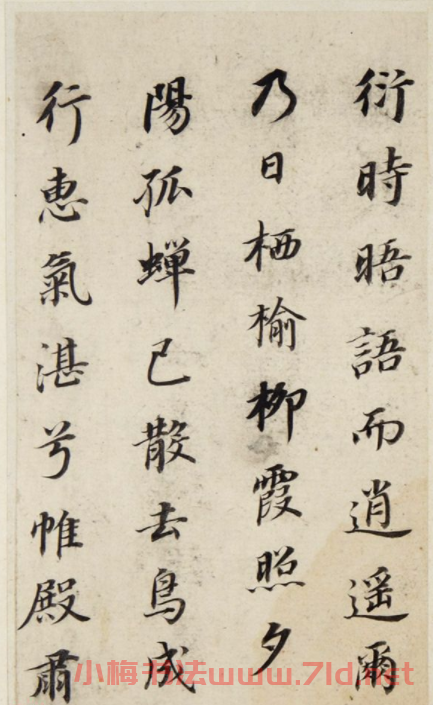 衍時晤語而逍遥爾
乃日栖榆柳霞照夕
陽孤蟬已散去鳥成
行惠氣湛兮帷殿肅
小梅书法www.7ld.net